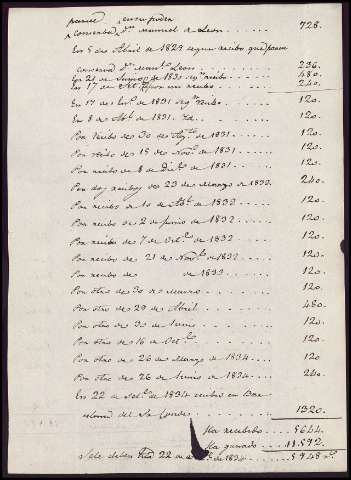 conserba Dn. Manuel de Leon . . . . . . 728.
En 5 de Abril de 1829 segun recibo que para
conserva Dn. Manl. Leon . . . . . . . 236.
En 21 de Junio de 1831 sgn. recibo . . . 480.
En 17 de . . . 240.
En 17 de 1831 sgn. recibo . . . . 120.
En 8 de 1831. Id. . . . . . . . 120.
Por recibo de 30 de Agto. de 1831 . . . . 120.
Por recibo de 15 de Nov.e de 1831 . . . . 120.
Por recibo de 8 de Dic.e de 1831 . . . . . 120.
Por dos recibos de 23 de Marzo de 1832 . . 240.
Por recibo de 10 de de 1832 . . . . 120.
Por recibo de 2 de Junio de 1832 . . . . . 120.
Por recibo de 7 de Oct.e de 1832 . . . . . 120.
Por recibo de 21 de Nov.e de 1832 . . . . 120.
Por recibo de de 1833 . . . . 120.
Por otro de 30 de . . . . . . . 120.
Por otro de 29 de Abril . . . . . . . . 480.
Por otro de 30 de Junio . . . . . . . . 120.
Por otro de 16 de Oct.e . . . . . . . . 120.
Por otro de 26 de Marzo de 1834 . . . . . 120
Por otro de 26 de Junio de 1834 . . . . . 240.
En 22 de de 1834 recibio en Bar
celona del Sr. Conde . . . . . . . 1320.
Ha recibido . . . 5644.
Ha ganado . . . 11.592.
Se le deben 22 de de 1834 . . . . 5948